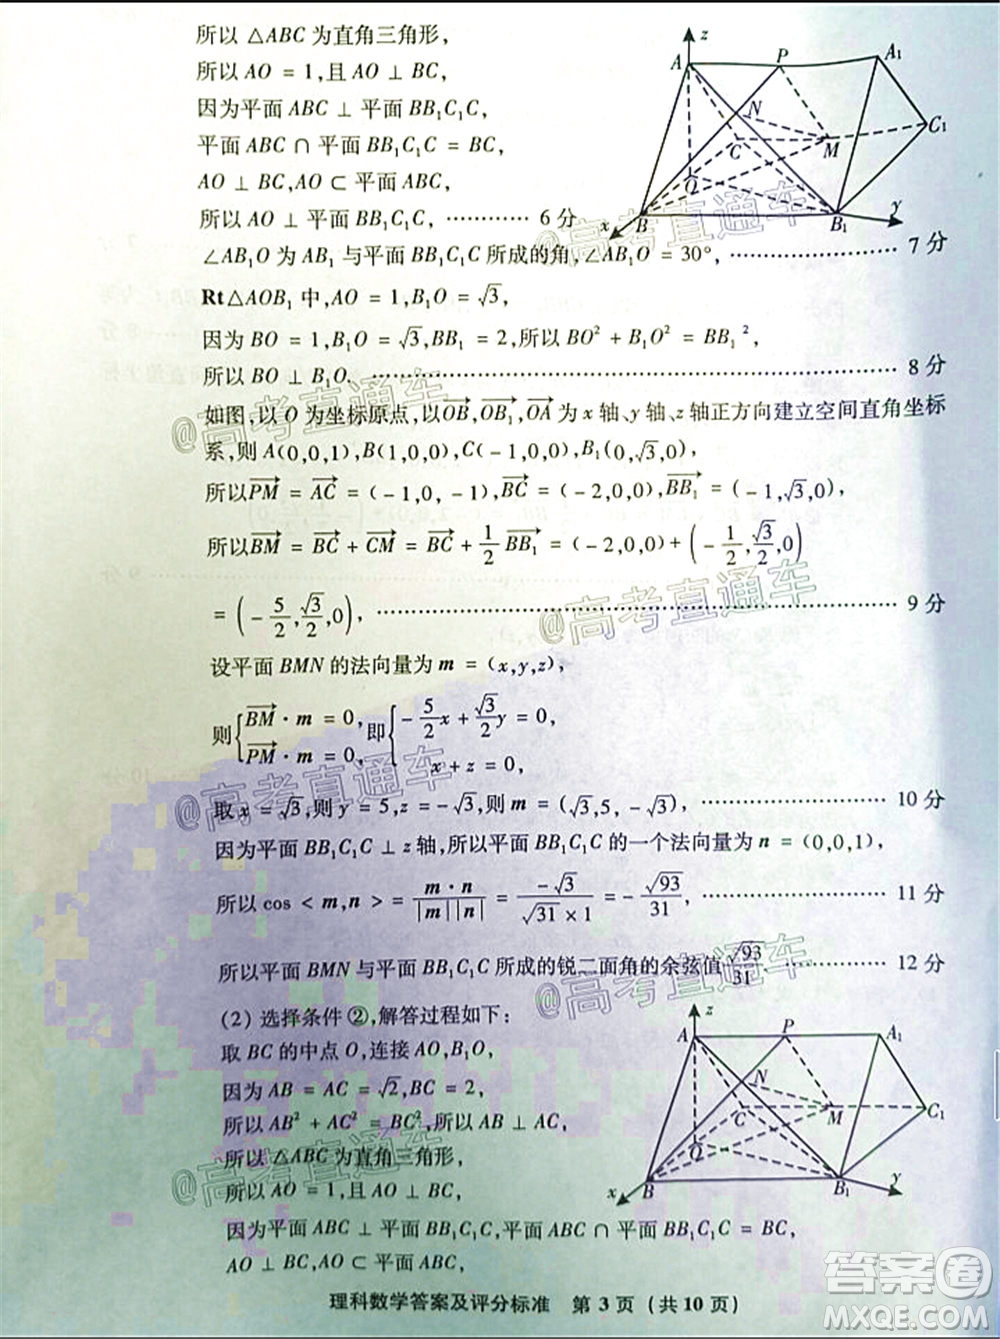 所以 △ABC 为直角三角形，
所以 AO = 1，且 AO ⊥ BC，
因为平面 ABC ⊥ 平面 BB₁C₁C，
平面 ABC ∩ 平面 BB₁C₁C = BC，
AO ⊥ BC，AO ⊂ 平面 ABC，
所以 AO ⊥ 平面 BB₁C₁C， ………… 6 分
∠AB₁O 为 AB₁ 与平面 BB₁C₁C 所成的角，∠AB₁O = 30°， ………… 7 分
Rt△AOB₁ 中，AO = 1，B₁O = √3，
因为 BO = 1，B₁O = √3，BB₁ = 2，所以 BO² + B₁O² = BB₁²，
所以 BO ⊥ B₁O. ………… 8 分
如图，以 O 为坐标原点，以 \overrightarrow{OB}，\overrightarrow{OB₁}，\overrightarrow{OA} 为 x 轴、y 轴、z 轴正方向建立空间直角坐标
系，则 A(0,0,1)，B(1,0,0)，C(-1,0,0)，B₁(0,√3,0)
所以 \overrightarrow{PM} = \overrightarrow{AC} = (-1,0,-1)，\overrightarrow{BC} = (-2,0,0)，\overrightarrow{BB₁} = (-1,√3,0)，
所以 \overrightarrow{BM} = \overrightarrow{BC} + \overrightarrow{CM} = \overrightarrow{BC} + 1/2 \overrightarrow{BB₁} = (-2,0,0) + (-1/2, √3/2, 0)
= (-5/2, √3/2, 0)， ………… 9 分
设平面 BMN 的法向量为 m = (x,y,z)，
则 { \overrightarrow{BM} · m = 0， \overrightarrow{PM} · m = 0， 即 { -5/2 x + √3/2 y = 0， x + z = 0，
取 x = √3，则 y = 5，z = -√3，则 m = (√3,5,-√3)， ………… 10 分
因为平面 BB₁C₁C ⊥ z 轴，所以平面 BB₁C₁C 的一个法向量为 n = (0,0,1)，
所以 cos < m,n > = m · n / |m||n| = -√3 / √31 × 1 = -√93/31， ………… 11 分
所以平面 BMN 与平面 BB₁C₁C 所成的锐二面角的余弦值 √93/31. ………… 12 分
(2) 选择条件②，解答过程如下：
取 BC 的中点 O，连接 AO，B₁O，
因为 AB = AC = √2，BC = 2，
所以 AB² + AC² = BC²，所以 AB ⊥ AC，
所以 △ABC 为直角三角形，
所以 AO = 1，且 AO ⊥ BC，
因为平面 ABC ⊥ 平面 BB₁C₁C，平面 ABC ∩ 平面 BB₁C₁C = BC，
AO ⊥ BC，AO ⊂ 平面 ABC，
理科数学答案及评分标准 第 3 页（共 10 页）
z
A
P
A₁
N
C
M
C₁
O
x
B
B₁
y
z
A
P
A₁
N
C
M
C₁
O
x
B
B₁
y
@高考直通车
@高考直通车
@高考直通车
@高考直通车
@高考直通车
@高考直通车
答案圈
MXQE.COM